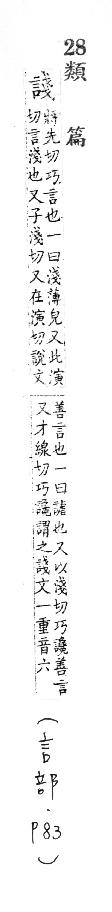 28 類篇
諓
將先切巧言也一曰淺薄皃又此演
切言淺也又子淺切又在演切說文
善言也一曰謔也又以淺切巧讒善言
又才線切巧讒謂之諓文一重音六
(言部.P83)